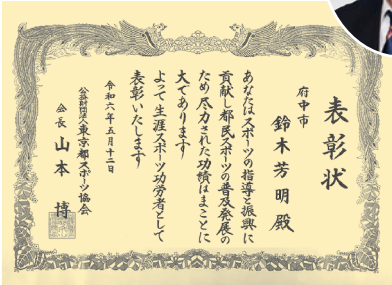 表彰状
府中市
鈴木芳明殿
あなたはスポーツの指導と振興に
貢献し都民スポーツの普及発展の
ため尽力された功績はまことに
大であります
よって生涯スポーツ功労者として
表彰いたします
令和六年五月十二日
公益財団法人東京都スポーツ協会
会長 山本 博